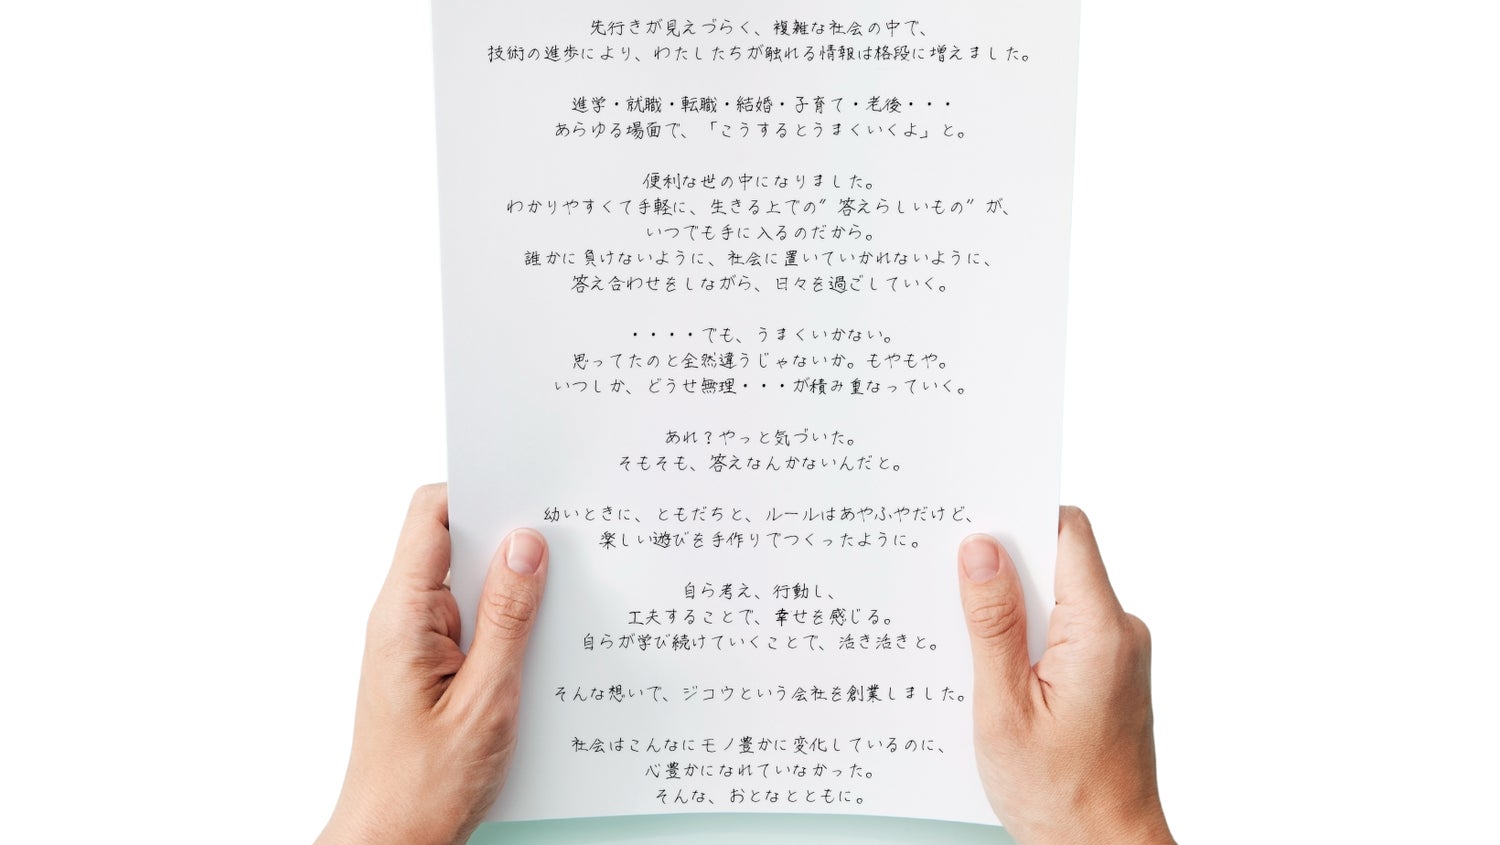 先行きが見えづらく、複雑な社会の中で、
技術の進歩により、わたしたちが触れる情報は格段に増えました。
進学・就職・転職・結婚・子育て・老後・・・
あらゆる場面で、「こうするとうまくいくよ」と。
便利な世の中になりました。
わかりやすくて手軽に、生きる上での”答えらしいもの”が、
いつでも手に入るのだから。
誰かに負けないように、社会に置いていかれないように、
答え合わせをしながら、日々を過ごしていく。
・・・・でも、うまくいかない。
思ってたのと全然違うじゃないか。もやもや。
いつしか、どうせ無理・・・が積み重なっていく。
あれ？やっと気づいた。
そもそも、答えなんかないんだと。
幼いときに、ともだちと、ルールはあやふやだけど、
楽しい遊びを手作りでつくったように。
自ら考え、行動し、
工夫することで、幸せを感じる。
自らが学び続けていくことで、活き活きと。
そんな想いで、ジコウという会社を創業しました。
社会はこんなにモノ豊かに変化しているのに、
心豊かになれていなかった。
そんな、おとなとともに。